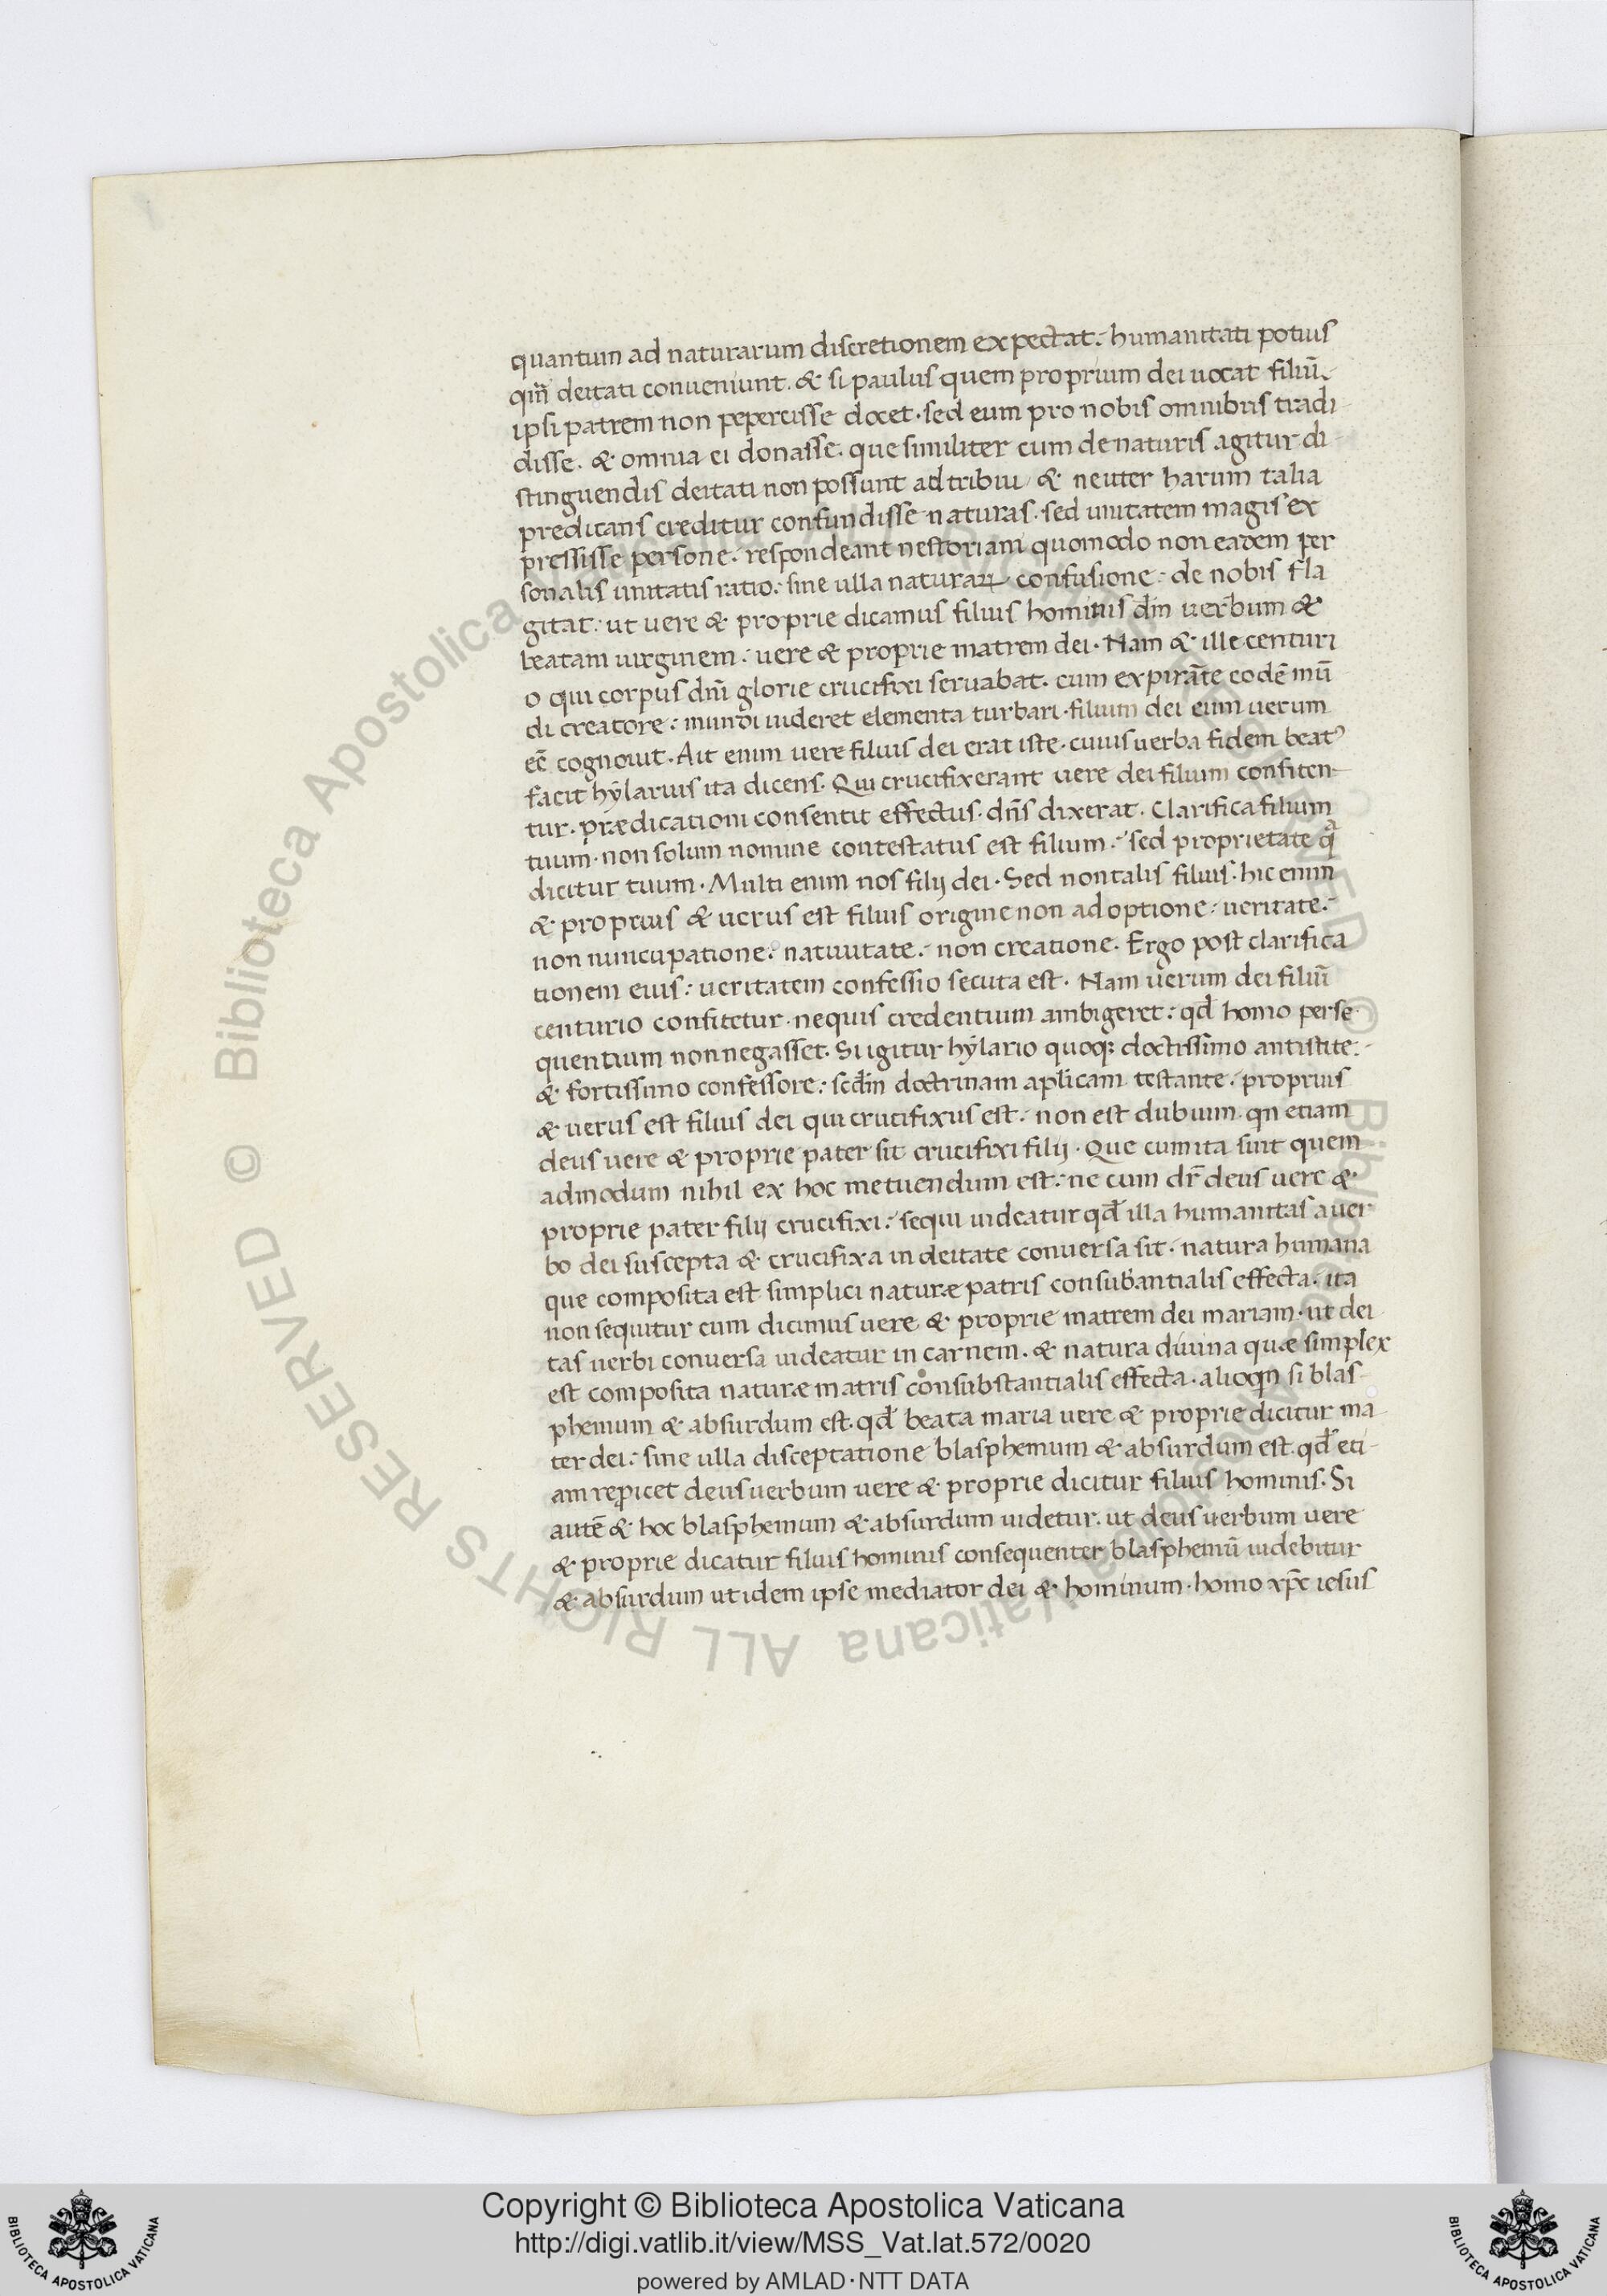 quantum ad naturarum discretionem expectat: humanitati potius
qm̄ deitati conueniunt. & si paulus quem proprium dei uocat filiū.
ipsi patrem non pepercisse docet. sed eum pro nobis omnibus tradi
disse. & omnia ei donasse. que similiter cum de naturis agitur di
stinguendis deitati non possunt adtribui & neuter harum talia
predicans creditur confundisse naturas. sed unitatem magis ex
pressisse persone. respondeant nestoriani quomodo non eadem per
sonalis unitatis ratio: sine ulla naturaꝝ confusione: de nobis fla
gitat: ut uere & proprie dicamus filius hominis dm̄ uerbum &
beatam uirginem: uere & proprie matrem dei. Nam & ille centuri
o qui corpus dn̄i glorie crucifixi seruabat. cum expirāte eodē mū
di creatore: mundi uideret elementa turbari. filium dei eum uerum
eē cognouit. Ait enim uere filius dei erat iste. cuius uerba fidem beatꝰ
facit hylarius ita dicens. Qui crucifixerant uere dei filium confiten
tur. prædicationi consentit effectus. dn̄s dixerat. Clarifica filium
tuum. non solum nomine contestatus est filium: sed proprietate qᵃ
dicitur tuum. Multi enim nos filij dei. Sed non talis filius. hic enim
& proprius & uerus est filius origine non adoptione: ueritate:
non nuncupatione: natiuitate: non creatione. Ergo post clarifica
tionem eius: ueritatem confessio secuta est. Nam uerum dei filiū
centurio confitetur. nequis credentium ambigeret: qđ homo perse
quentium non negasset. Si igitur hylario quoqꝫ doctissimo antistite:
& fortissimo confessore: scđm doctrinam apl̄icam testante. proprius
& uerus est filius dei qui crucifixus est: non est dubium. qn etiam
deus uere & proprie pater sit crucifixi filij. Que cum ita sint quem
admodum nihil ex hoc metuendum est: ne cum dr̄ deus uere &
proprie pater filij crucifixi: sequi uideatur qđ illa humanitas a uer
bo dei suscepta & crucifixa in deitate conuersa sit. natura humana
que composita est simplici naturæ patris consubantialis effecta. ita
non sequitur cum dicimus uere & proprie matrem dei mariam. ut dei
tas uerbi conuersa uideatur in carnem. & natura diuina quæ simplex
est composita naturæ matris consubstantialis effecta. alioqn si blas
phemum & absurdum est. qđ beata maria uere & proprie dicitur ma
ter dei: sine ulla disceptatione blasphemum & absurdum est. qđ eti
am repicet deus uerbum uere & proprie dicitur filius hominis. Si
autē & hoc blasphemum & absurdum uidetur. ut deus uerbum uere
& proprie dicatur filius hominis consequenter blasphemū uidebitur
& absurdum ut idem ipse mediator dei & hominum. homo xp̄c iesus
© Biblioteca Apostolica Vaticana ALL RIGHTS RESERVED
Copyright © Biblioteca Apostolica Vaticana
http://digi.vatlib.it/view/MSS_Vat.lat.572/0020
powered by AMLAD·NTT DATA
BIBLIOTECA APOSTOLICA VATICANA
BIBLIOTECA APOSTOLICA VATICANA